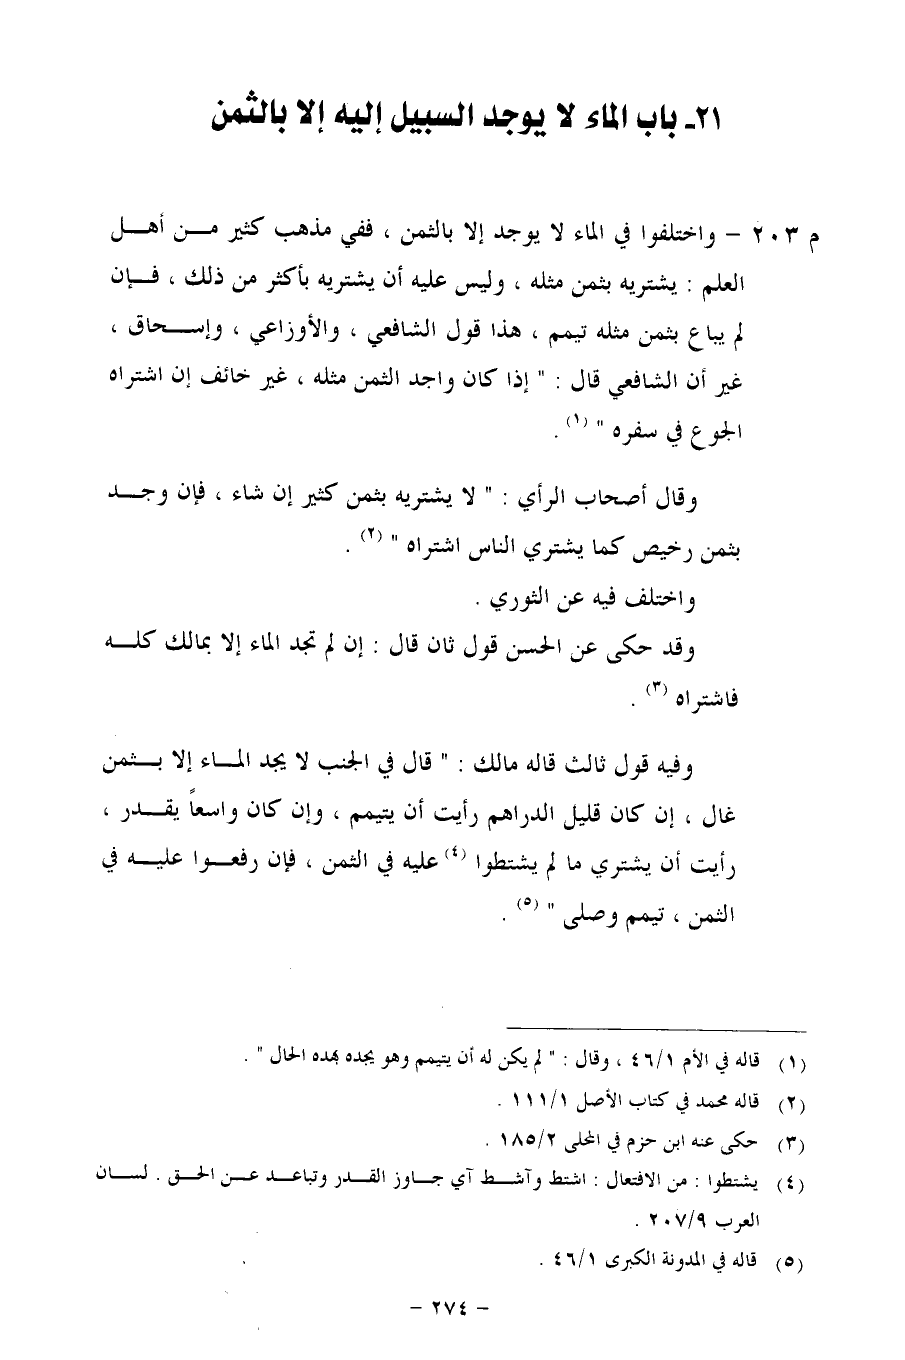 ٢١ـ باب الماء لا يوجد السبيل إليه إلا بالثمن
م ٢٠٣ – واختلفوا في الماء لا يوجد إلا بالثمن ، ففي مذهب كثير مـن أهـل
العلم : يشتريه بثمن مثله ، وليس عليه أن يشتريه بأكثر من ذلك ، فـإن
لم يباع بثمن مثله تيمم ، هذا قول الشافعي ، والأوزاعي ، وإسـحاق ،
غير أن الشافعي قال : " إذا كان واجد الثمن مثله ، غير خائف إن اشتراه
الجوع في سفره " (١) .
وقال أصحاب الرأي : " لا يشتريه بثمن كثير إن شاء ، فإن وجـد
بثمن رخيص كما يشتري الناس اشتراه " (٢) .
واختلف فيه عن الثوري .
وقد حكى عن الحسن قول ثان قال : إن لم تجد الماء إلا بمالك كلـه
فاشتراه (٣) .
وفيه قول ثالث قاله مالك : " قال في الجنب لا يجد المـاء إلا بـثمن
غال ، إن كان قليل الدراهم رأيت أن يتيمم ، وإن كان واسعاً يقـدر ،
رأيت أن يشتري ما لم يشتطوا (٤) عليه في الثمن ، فإن رفعـوا عليـه في
الثمن ، تيمم وصلى " (٥) .
(١) قاله في الأم ٤٦/١ ، وقال : " لم يكن له أن يتيمم وهو يجده بهذه الحال " .
(٢) قاله محمد في كتاب الأصل ١١١/١ .
(٣) حكى عنه ابن حزم في المحلى ١٨٥/٢ .
(٤) يشتطوا : من الافتعال : اشتط وآشـط آي جـاوز القـدر وتباعـد عـن الحـق . لسـان
العرب ٢٠٧/٩ .
(٥) قاله في المدونة الكبرى ٤٦/١ .
– ٢٧٤ –